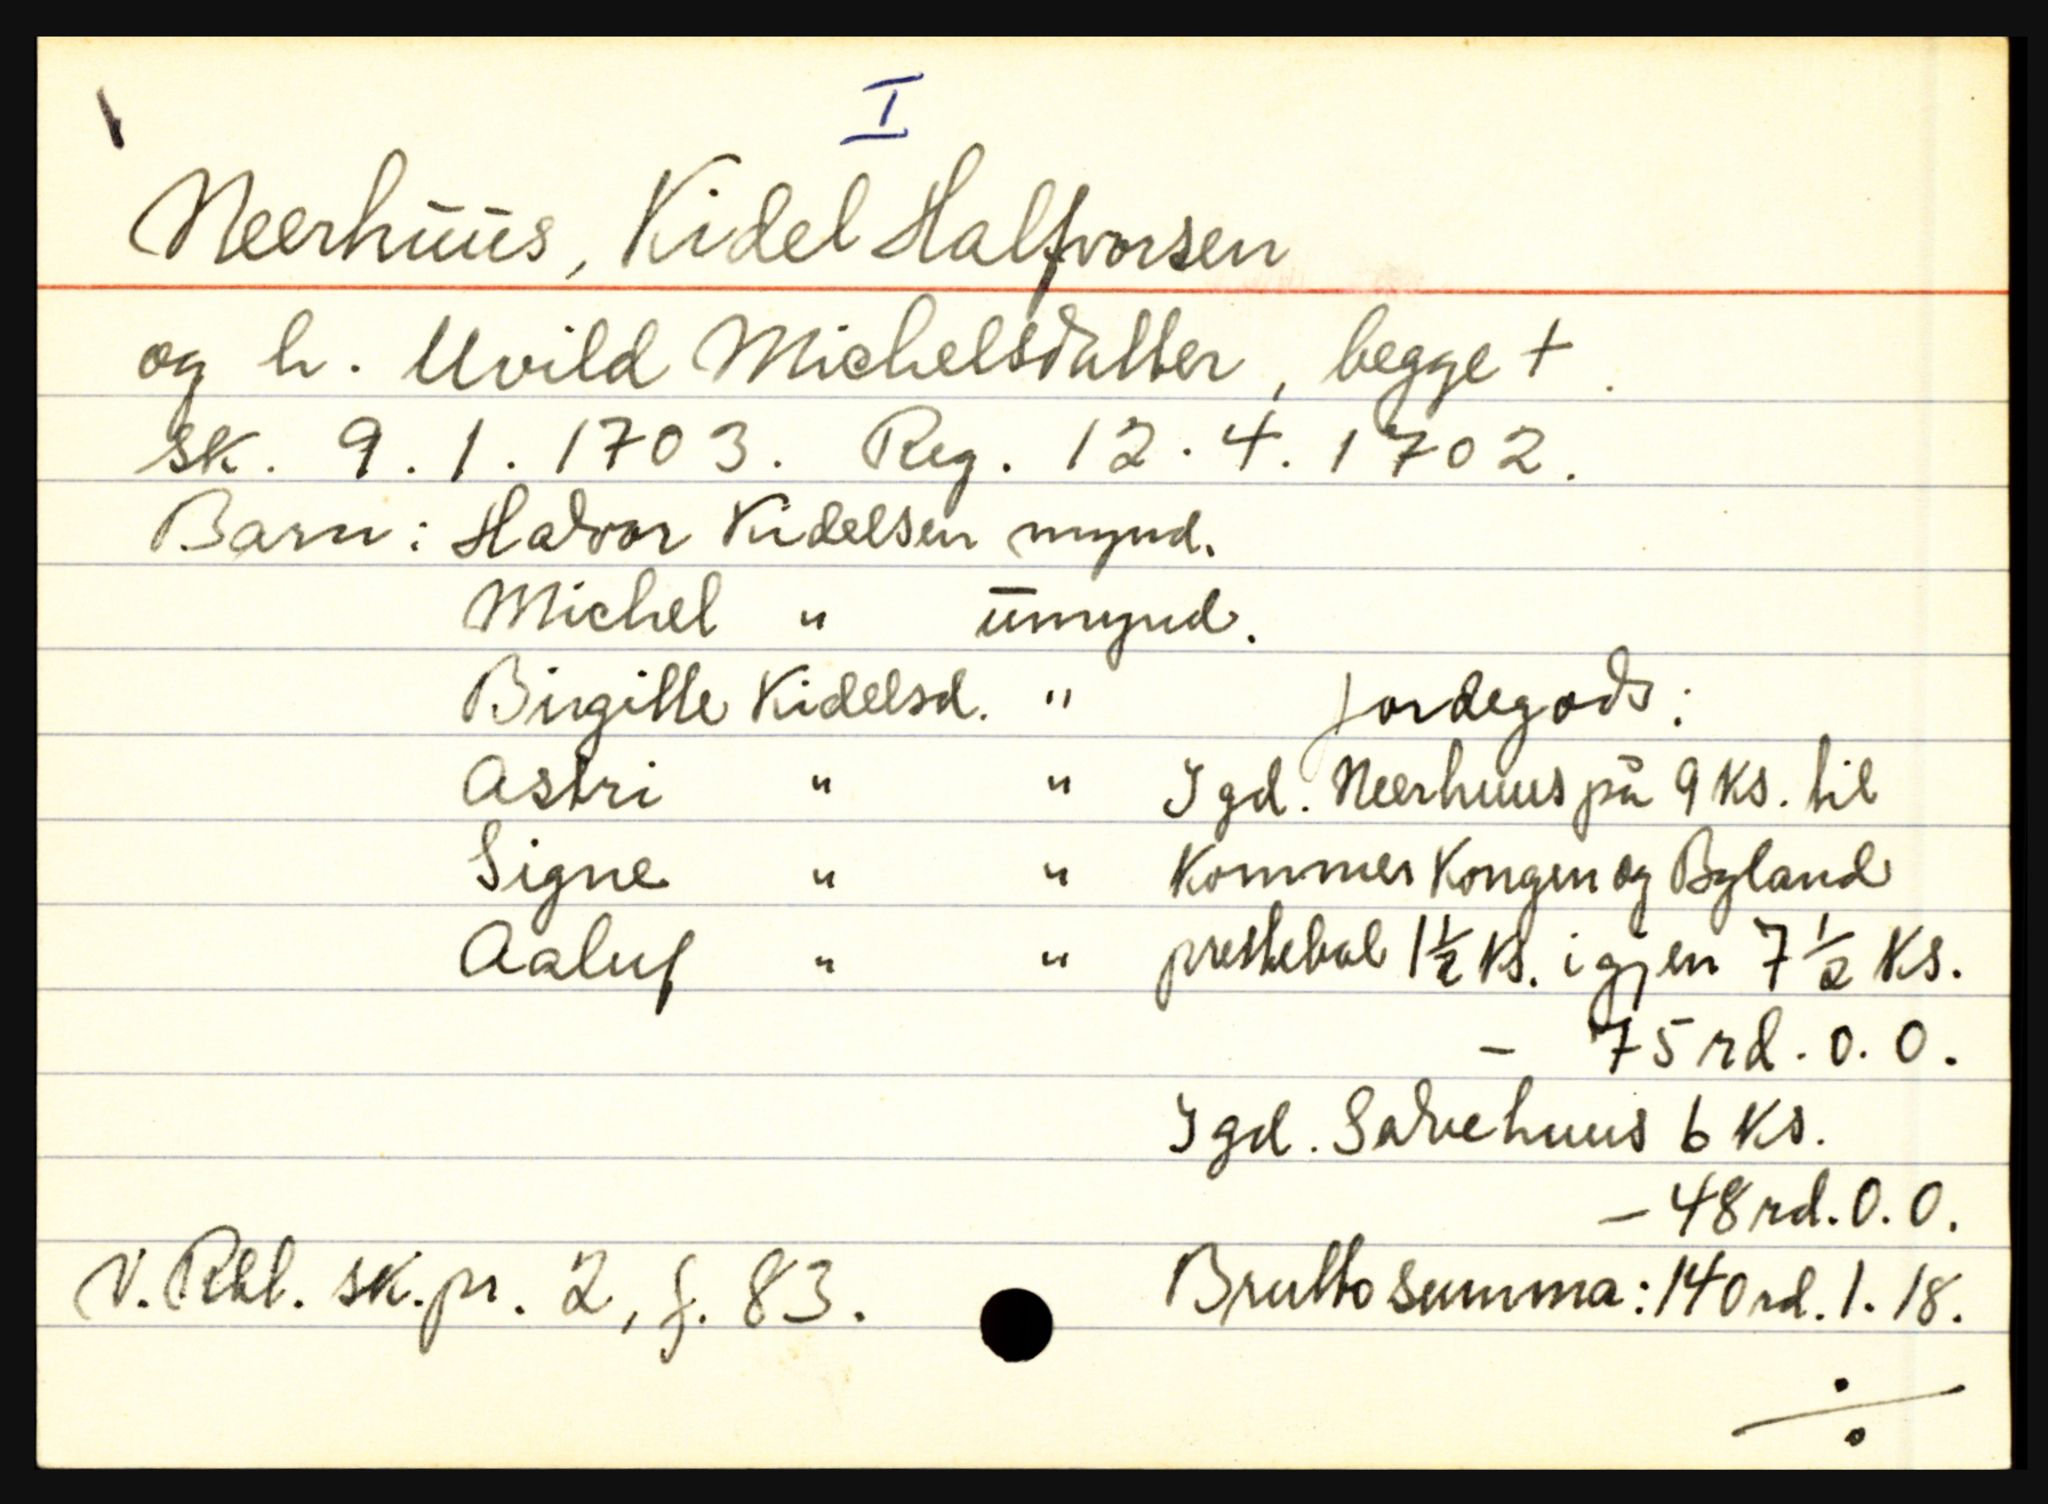 I
Neerhuus, Kidel Halfvorsen
og h. Uvild Michelsdatter, begge +.
sk. 9.1.1703. Reg. 12.4.1702.
Barn: Halvor Kidelsen mynd.
Michel " umynd.
Birgitte Kidelsd. "
Astri " "
Signe " "
Aaluf " "
Jordegods:
I gd. Neerhuus på 9 ks. til
kommer Kongen og Bygland
prestebol 1½ ks. igjen 7½ ks.
- 75 rd. 0. 0.
I gd. Salvehuus 6 ks.
- 48 rd. 0. 0.
Brutto summa: 140 rd. 1. 18.
V. Rbl. sk.pr. 2, f. 83.
÷